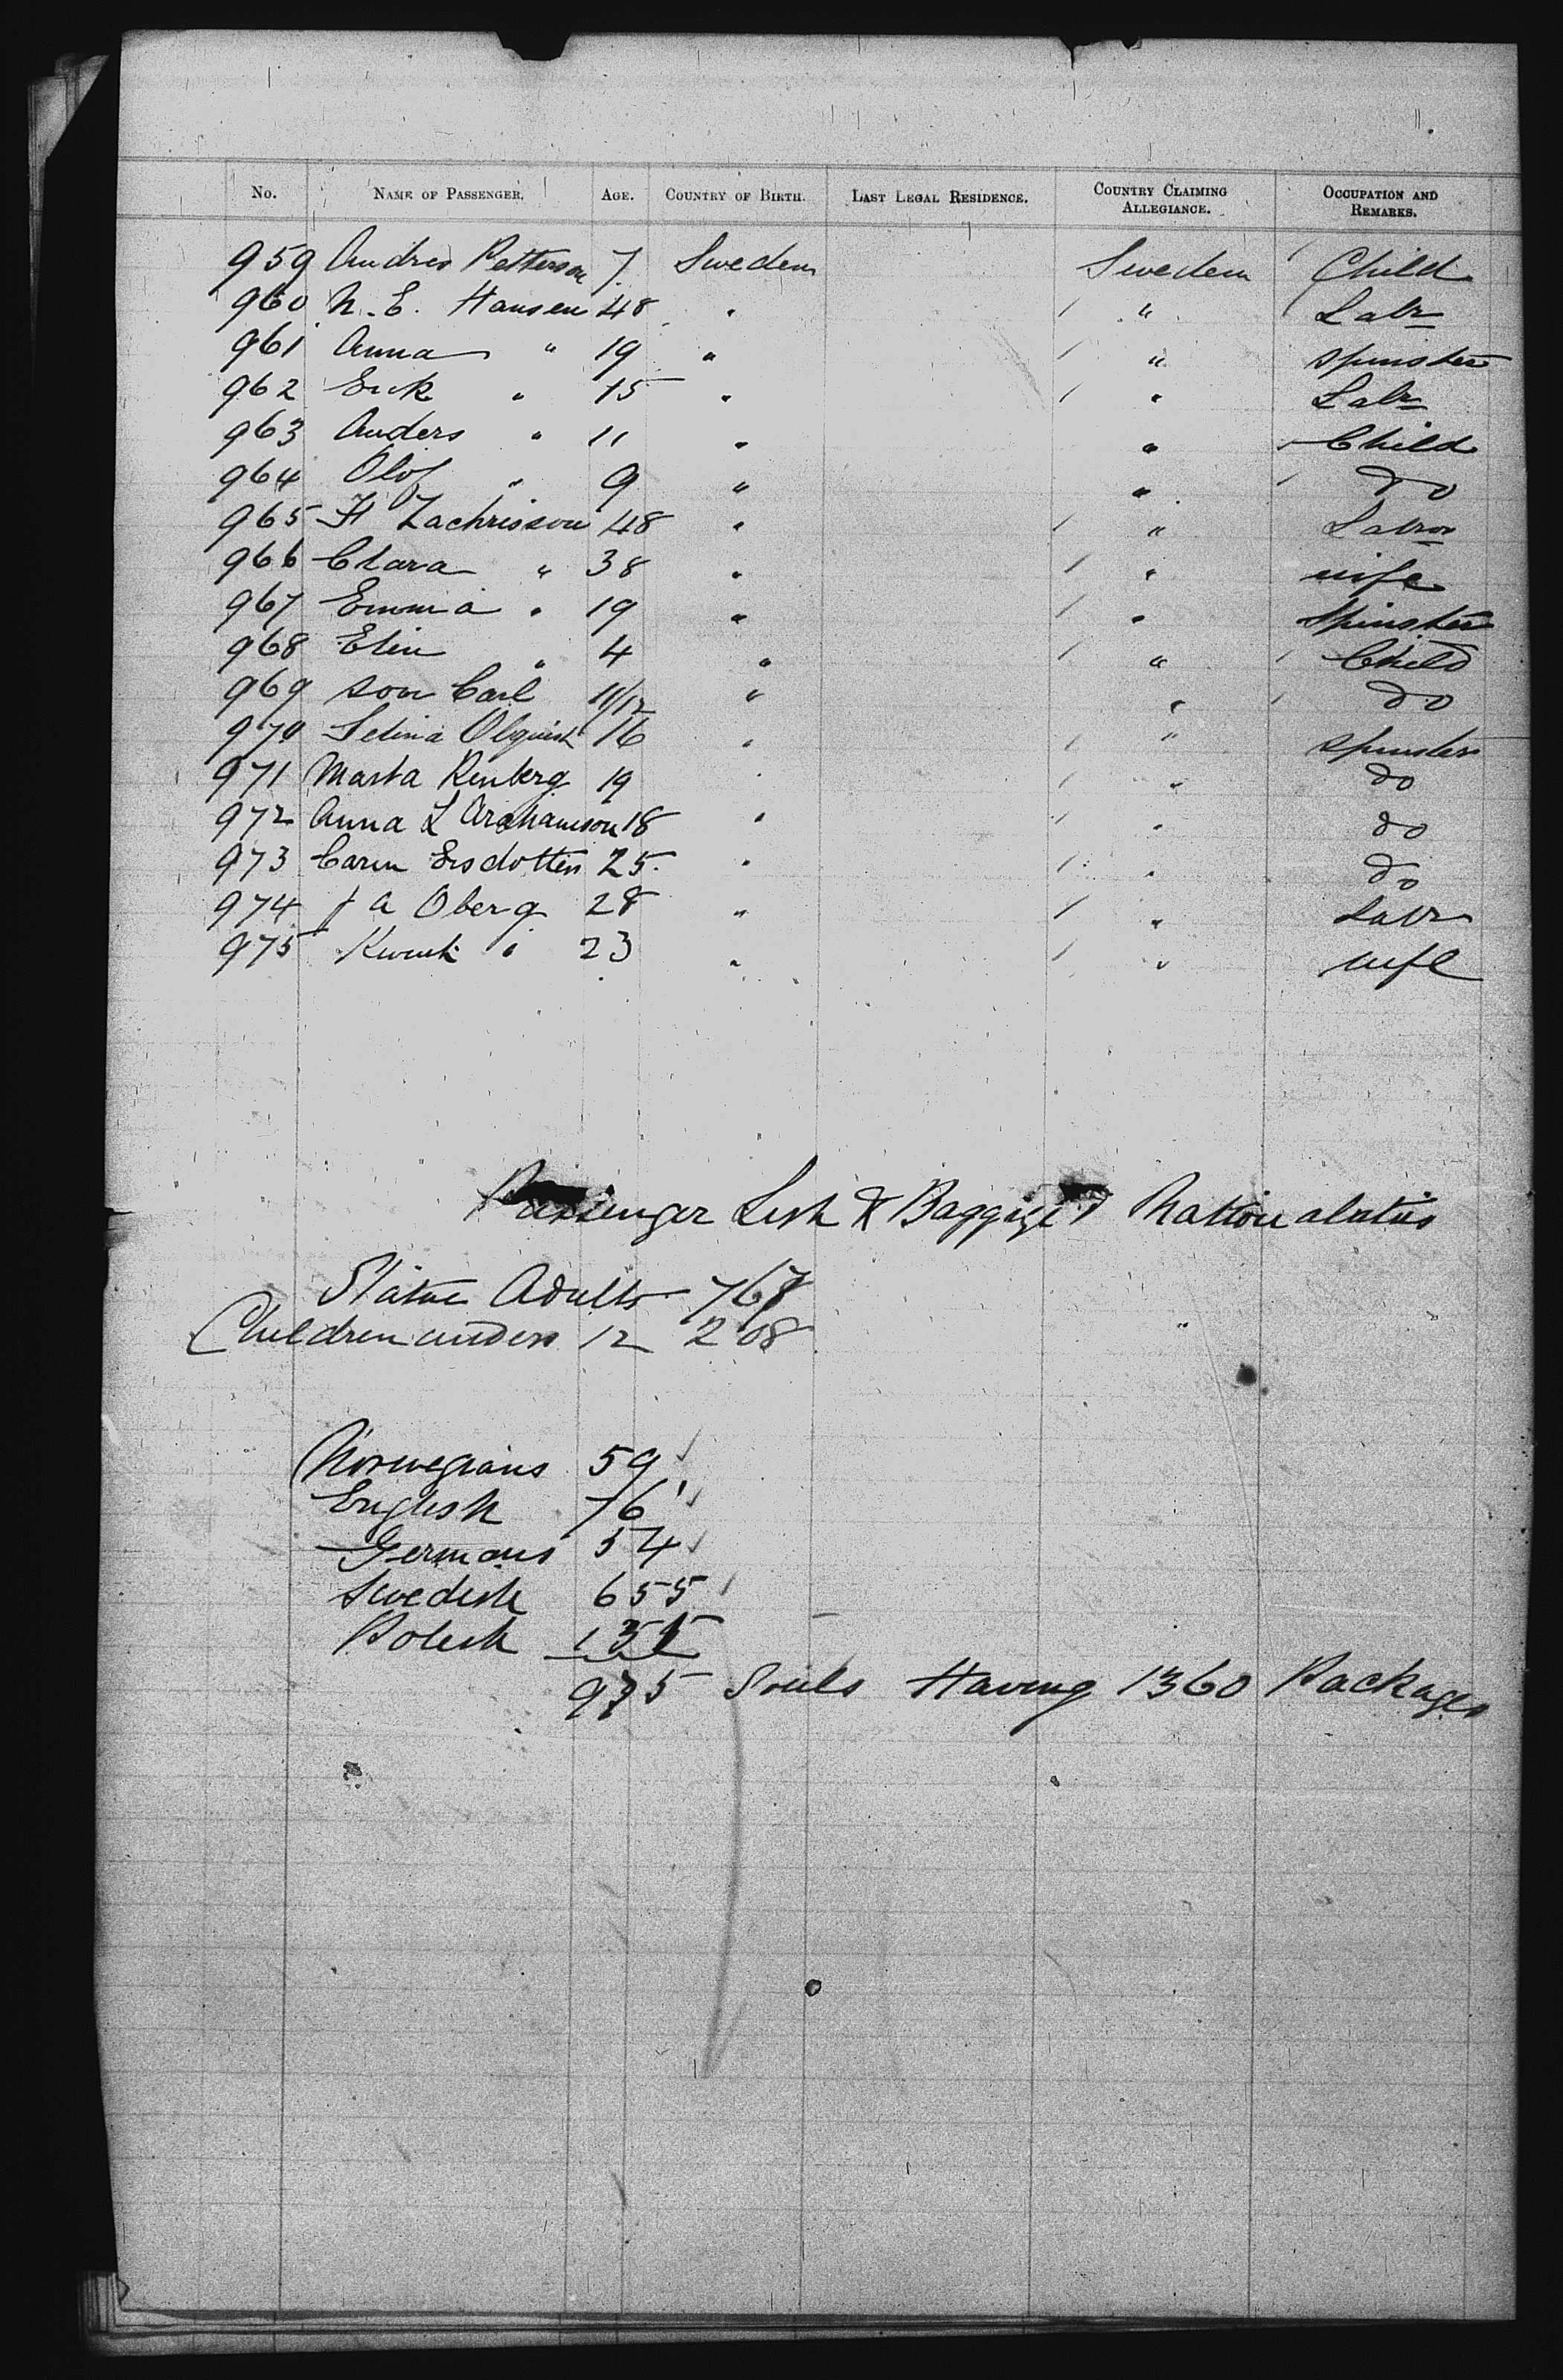 No. NAME OF PASSENGER. AGE. COUNTRY OF BIRTH. LAST LEGAL RESIDENCE. COUNTRY CLAIMING ALLEGIANCE. OCCUPATION AND REMARKS.
959 Andres Petterson 7 Sweden Sweden Child
960 N. E. Hansen 48 " " Labr
961 Anna " 19 " " Spinster
962 Erik " 15 " " Labr
963 Anders " 11 " " Child
964 Olof " 9 " " do
965 H Zachrisson 48 " " Labr
966 Clara " 38 " " wife
967 Emma " 19 " " Spinster
968 Elin " 4 " " Child
969 son Carl 11/12 " " do
970 Selina 16 " " spinster
971 Marta Renberg 19 " " do
972 Anna L 18 " " do
973 Carin Ersdotter 25 " " do
974 J A Oberg 28 " " Labr
975 " 23 " " wife
Passenger List & Baggage Nationalities
Adults 767
Children under 12 208
Norwegians 59
English 76
Germans 54
Swedish 655
Polish
975 Souls Having 1360 Packages